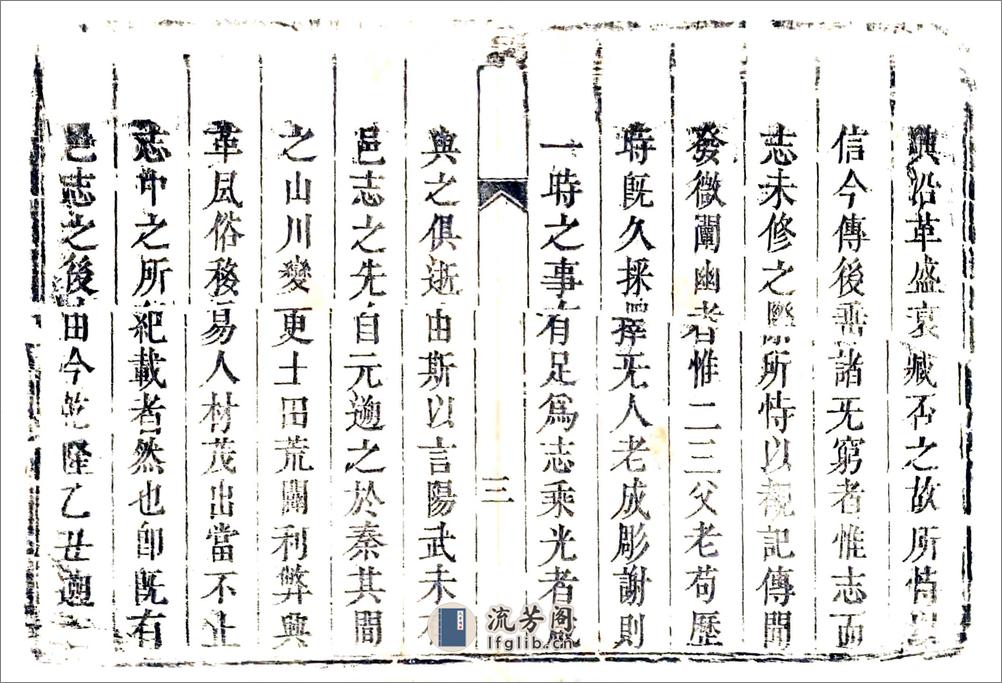 興沿革盛衰臧否之故所恃以
信今傳後垂諸旡窮者惟志而
志未修之際所恃以親記傳聞
發微闡幽者惟二三父老苟歷
時旣久採擇旡人老成彫謝則
一時之事有足爲志乘光者
三
與之俱逝由斯以言陽武未
邑志之先自元遡之於秦其間
之山川變更土田荒闢利弊興
革風俗移易人材茂出當不止
志中之所紀載者然也卽旣有
邑志之後由今乾隆乙丑遡
流芳阁
lfglib.cn